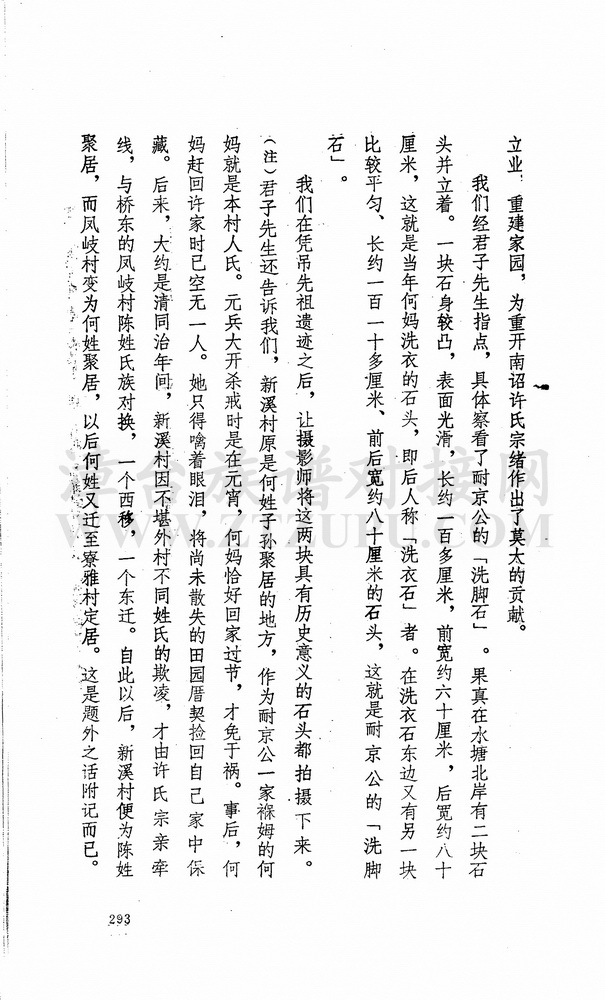 立业，重建家园，为重开南诏许氏宗绪作出了莫太的贡献。
我们经君子先生指点，具体察看了耐京公的「洗脚石」。果真在水塘北岸有二块石
头并立着。一块石身较凸，表面光滑，长约一百多厘米，前宽约六十厘米，后宽约八十
厘米，这就是当年何妈洗衣的石头，即后人称「洗衣石」者。在洗衣石东边又有另一块
比较平匀、长约一百一十多厘米、前后宽约八十厘米的石头，这就是耐京公的「洗脚
石」。
我们在凭吊先祖遗迹之后，让摄影师将这两块具有历史意义的石头都拍摄下来。
（注）君子先生还告诉我们，新溪村原是何姓子孙聚居的地方，作为耐京公一家褓姆的何
妈就是本村人氏。元兵大开杀戒时是在元宵，何妈恰好回家过节，才免于祸。事后，何
妈赶回许家时已空无一人。她只得噙着眼泪，将尚未散失的田园厝契捡回自己家中保
藏。后来，大约是清同治年间，新溪村因不堪外村不同姓氏的欺凌，才由许氏宗亲牵
线，与桥东的凤岐村陈姓氏族对换，一个西移，一个东迁。自此以后，新溪村便为陈姓
聚居，而凤岐村变为何姓聚居，以后何姓又迁至寮雅村定居。这是题外之话附记而已。
293
漳台族谱对接网
WWW.ZTZUPU.COM